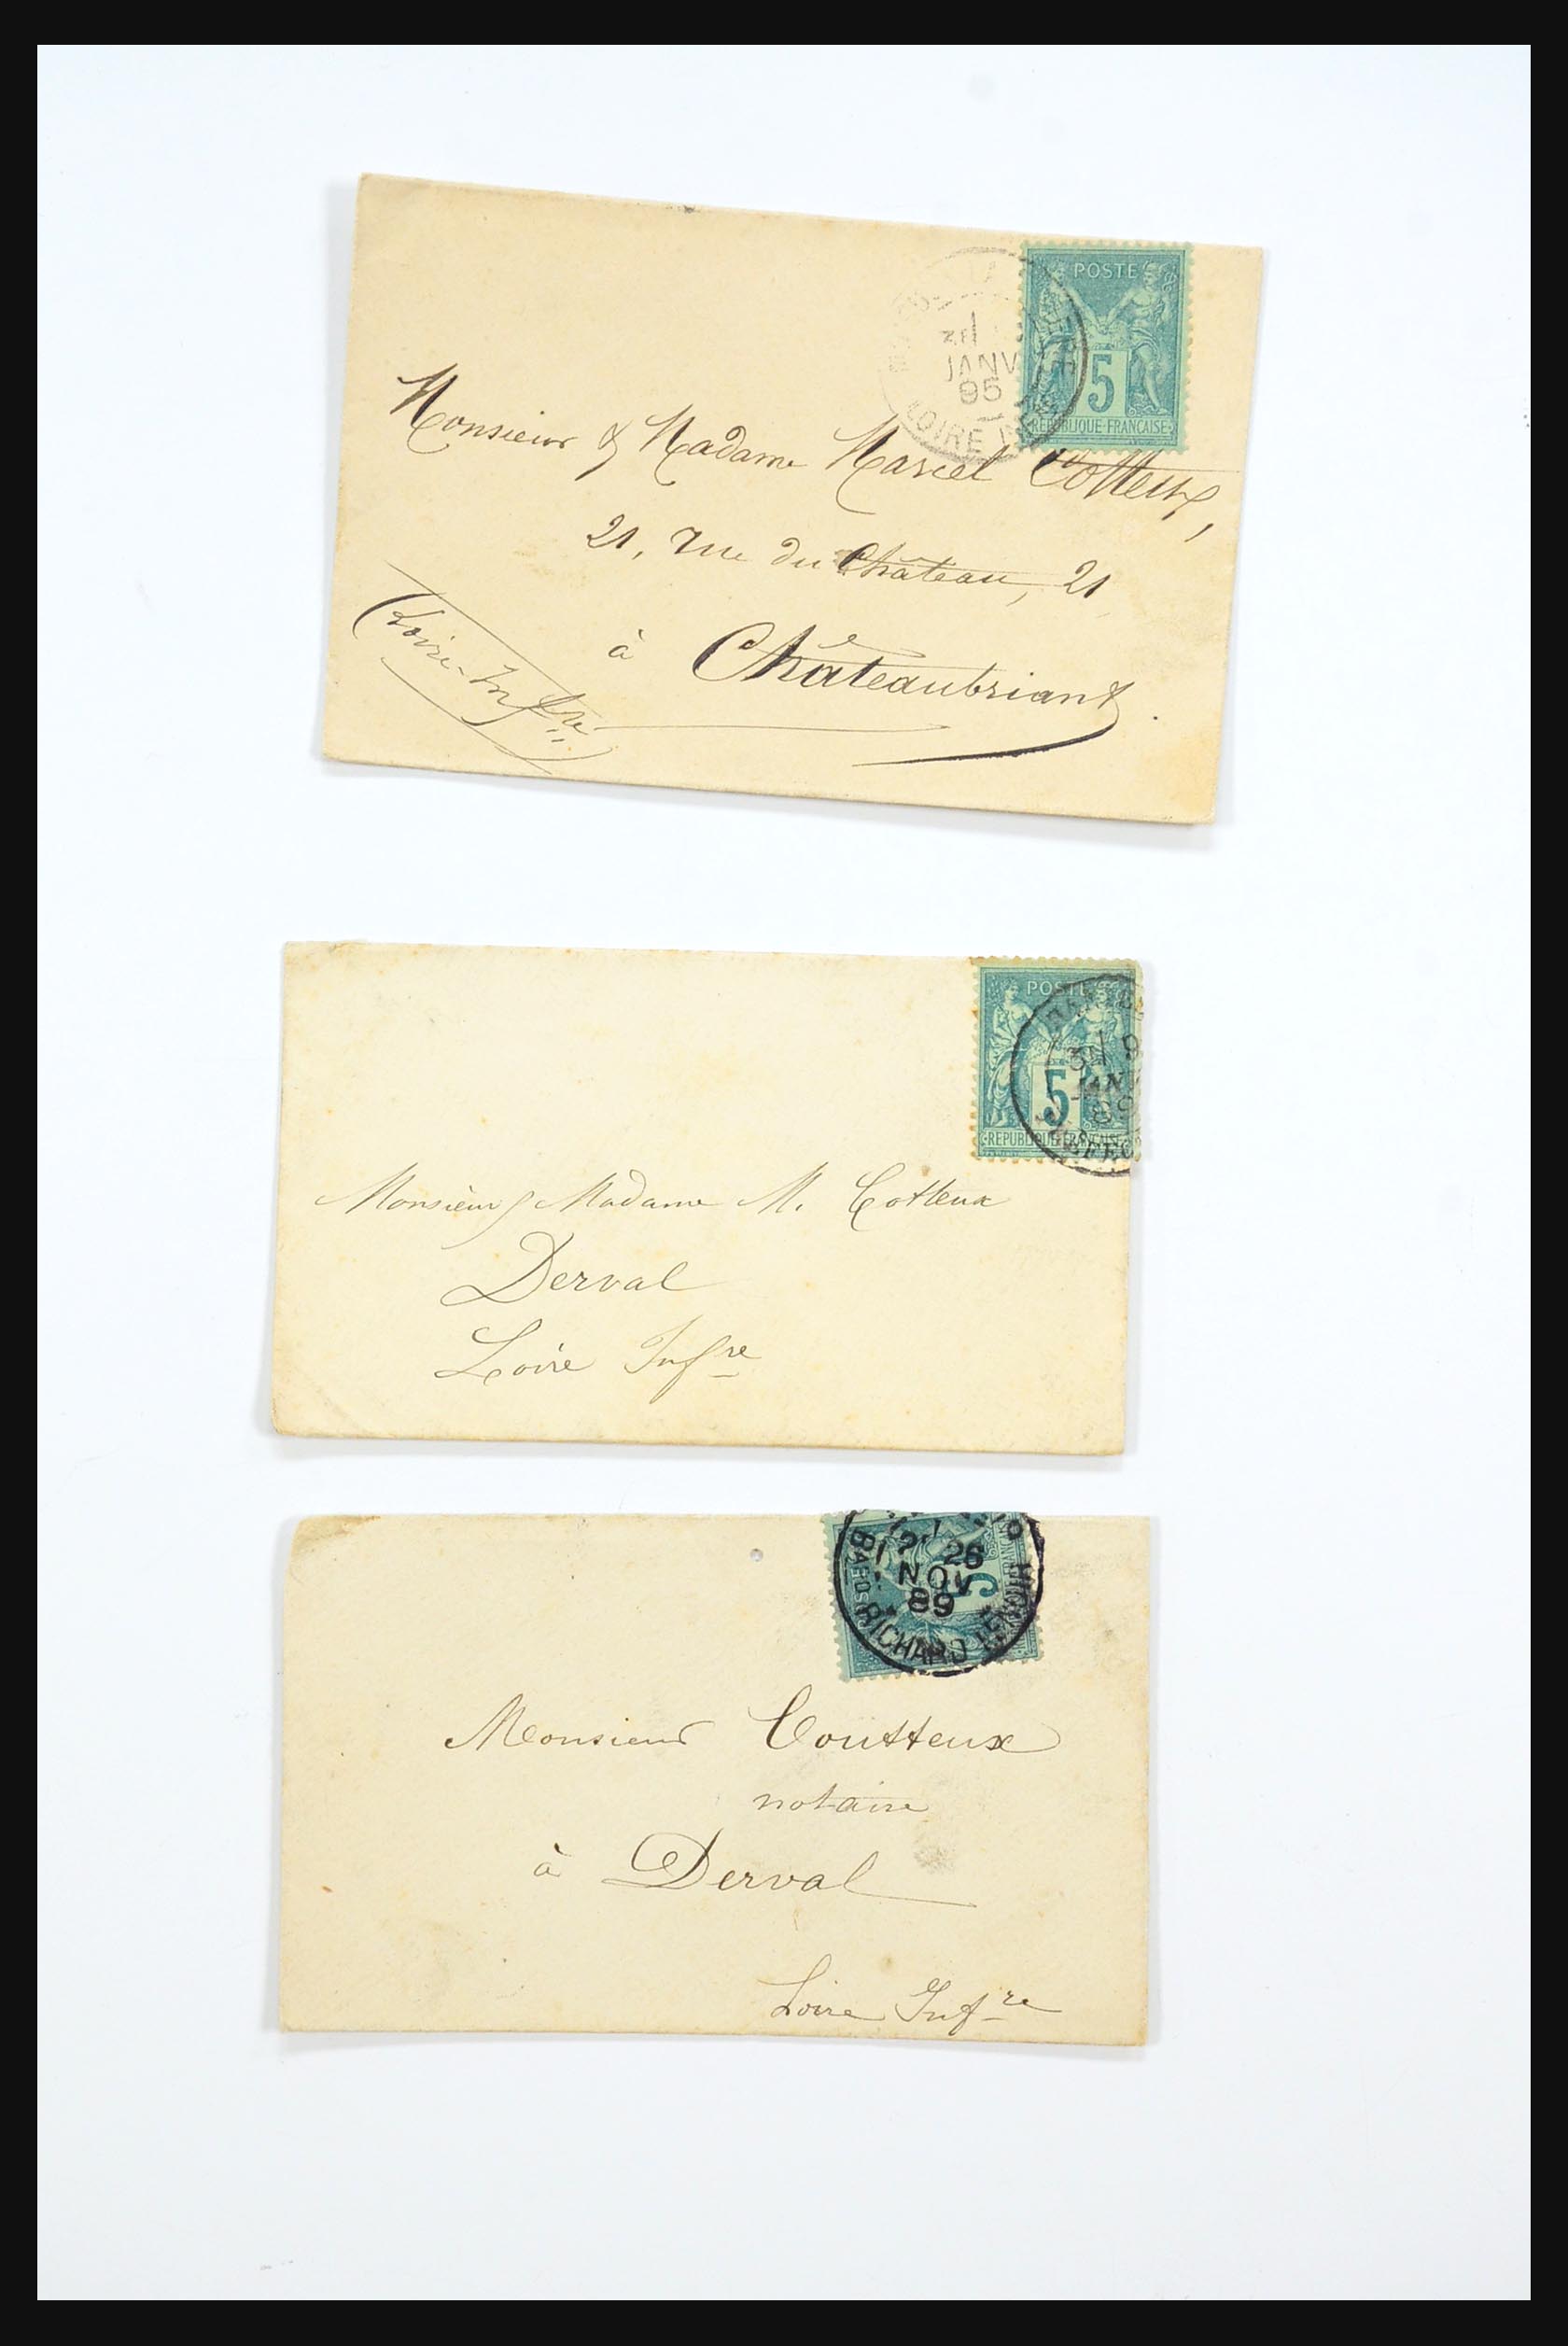 POSTE
5
REPUBLIQUE FRANCAISE
JANV
95
LOIRE
Monsieur & Madame Marcel Cotteux,
21, rue du Château, 21
à Châteaubriant.
(Loire-Infre)
POSTE
5
REPUBLIQUE FRANCAISE
9
JANV
89
Monsieur & Madame M. Cotteux
Derval
Loire Infre
26
NOV
89
5
BARD RICHARD LENOIR
Monsieur Coutteux
notaire
à Derval
Loire Infre